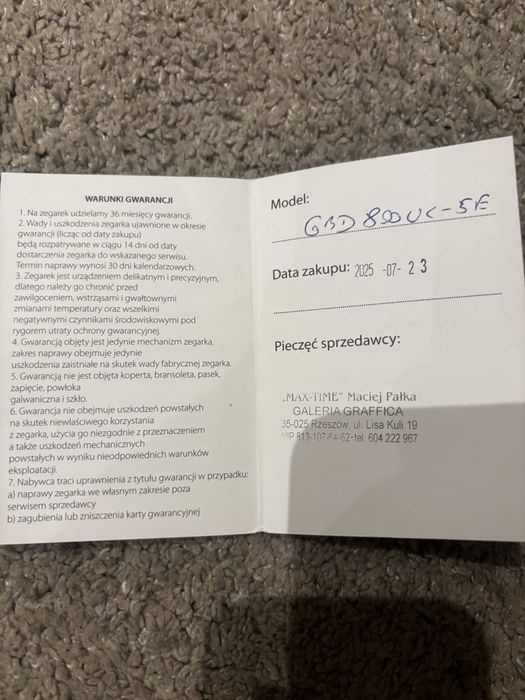 WARUNKI GWARANCJI
1. Na zegarek udzielamy 36 miesięcy gwarancji.
2. Wady i uszkodzenia zegarka ujawnione w okresie
gwarancji (licząc od daty zakupu)
będą rozpatrywane w ciągu 14 dni od daty
dostarczenia zegarka do wskazanego serwisu.
Termin naprawy wynosi 30 dni kalendarzowych.
3. Zegarek jest urządzeniem delikatnym i precyzyjnym,
dlatego należy go chronić przed
zawilgoceniem, wstrząsami i gwałtownymi
zmianami temperatury oraz wszelkimi
negatywnymi czynnikami środowiskowymi pod
rygorem utraty ochrony gwarancyjnej.
4. Gwarancją objęty jest jedynie mechanizm zegarka,
zakres naprawy obejmuje jedynie
uszkodzenia zaistniałe na skutek wady fabrycznej zegarka.
5. Gwarancją nie jest objęta koperta, bransoleta, pasek,
zapięcie, powłoka
galwaniczna i szkło.
6. Gwarancja nie obejmuje uszkodzeń powstałych
na skutek niewłaściwego korzystania
z zegarka, użycia go niezgodnie z przeznaczeniem
a także uszkodzeń mechanicznych
powstałych w wyniku nieodpowiednich warunków
eksploatacji.
7. Nabywca traci uprawnienia z tytułu gwarancji w przypadku:
a) naprawy zegarka we własnym zakresie poza
serwisem sprzedawcy
b) zagubienia lub zniszczenia karty gwarancyjnej
Model:
GBD 800UC-5E
Data zakupu: 2025 -07- 23
Pieczęć sprzedawcy:
„MAX-TIME" Maciej Pałka
GALERIA GRAFFICA
35-025 Rzeszów, ul. Lisa Kuli 19
NIP 813-107-64-62-tel. 604 222 967